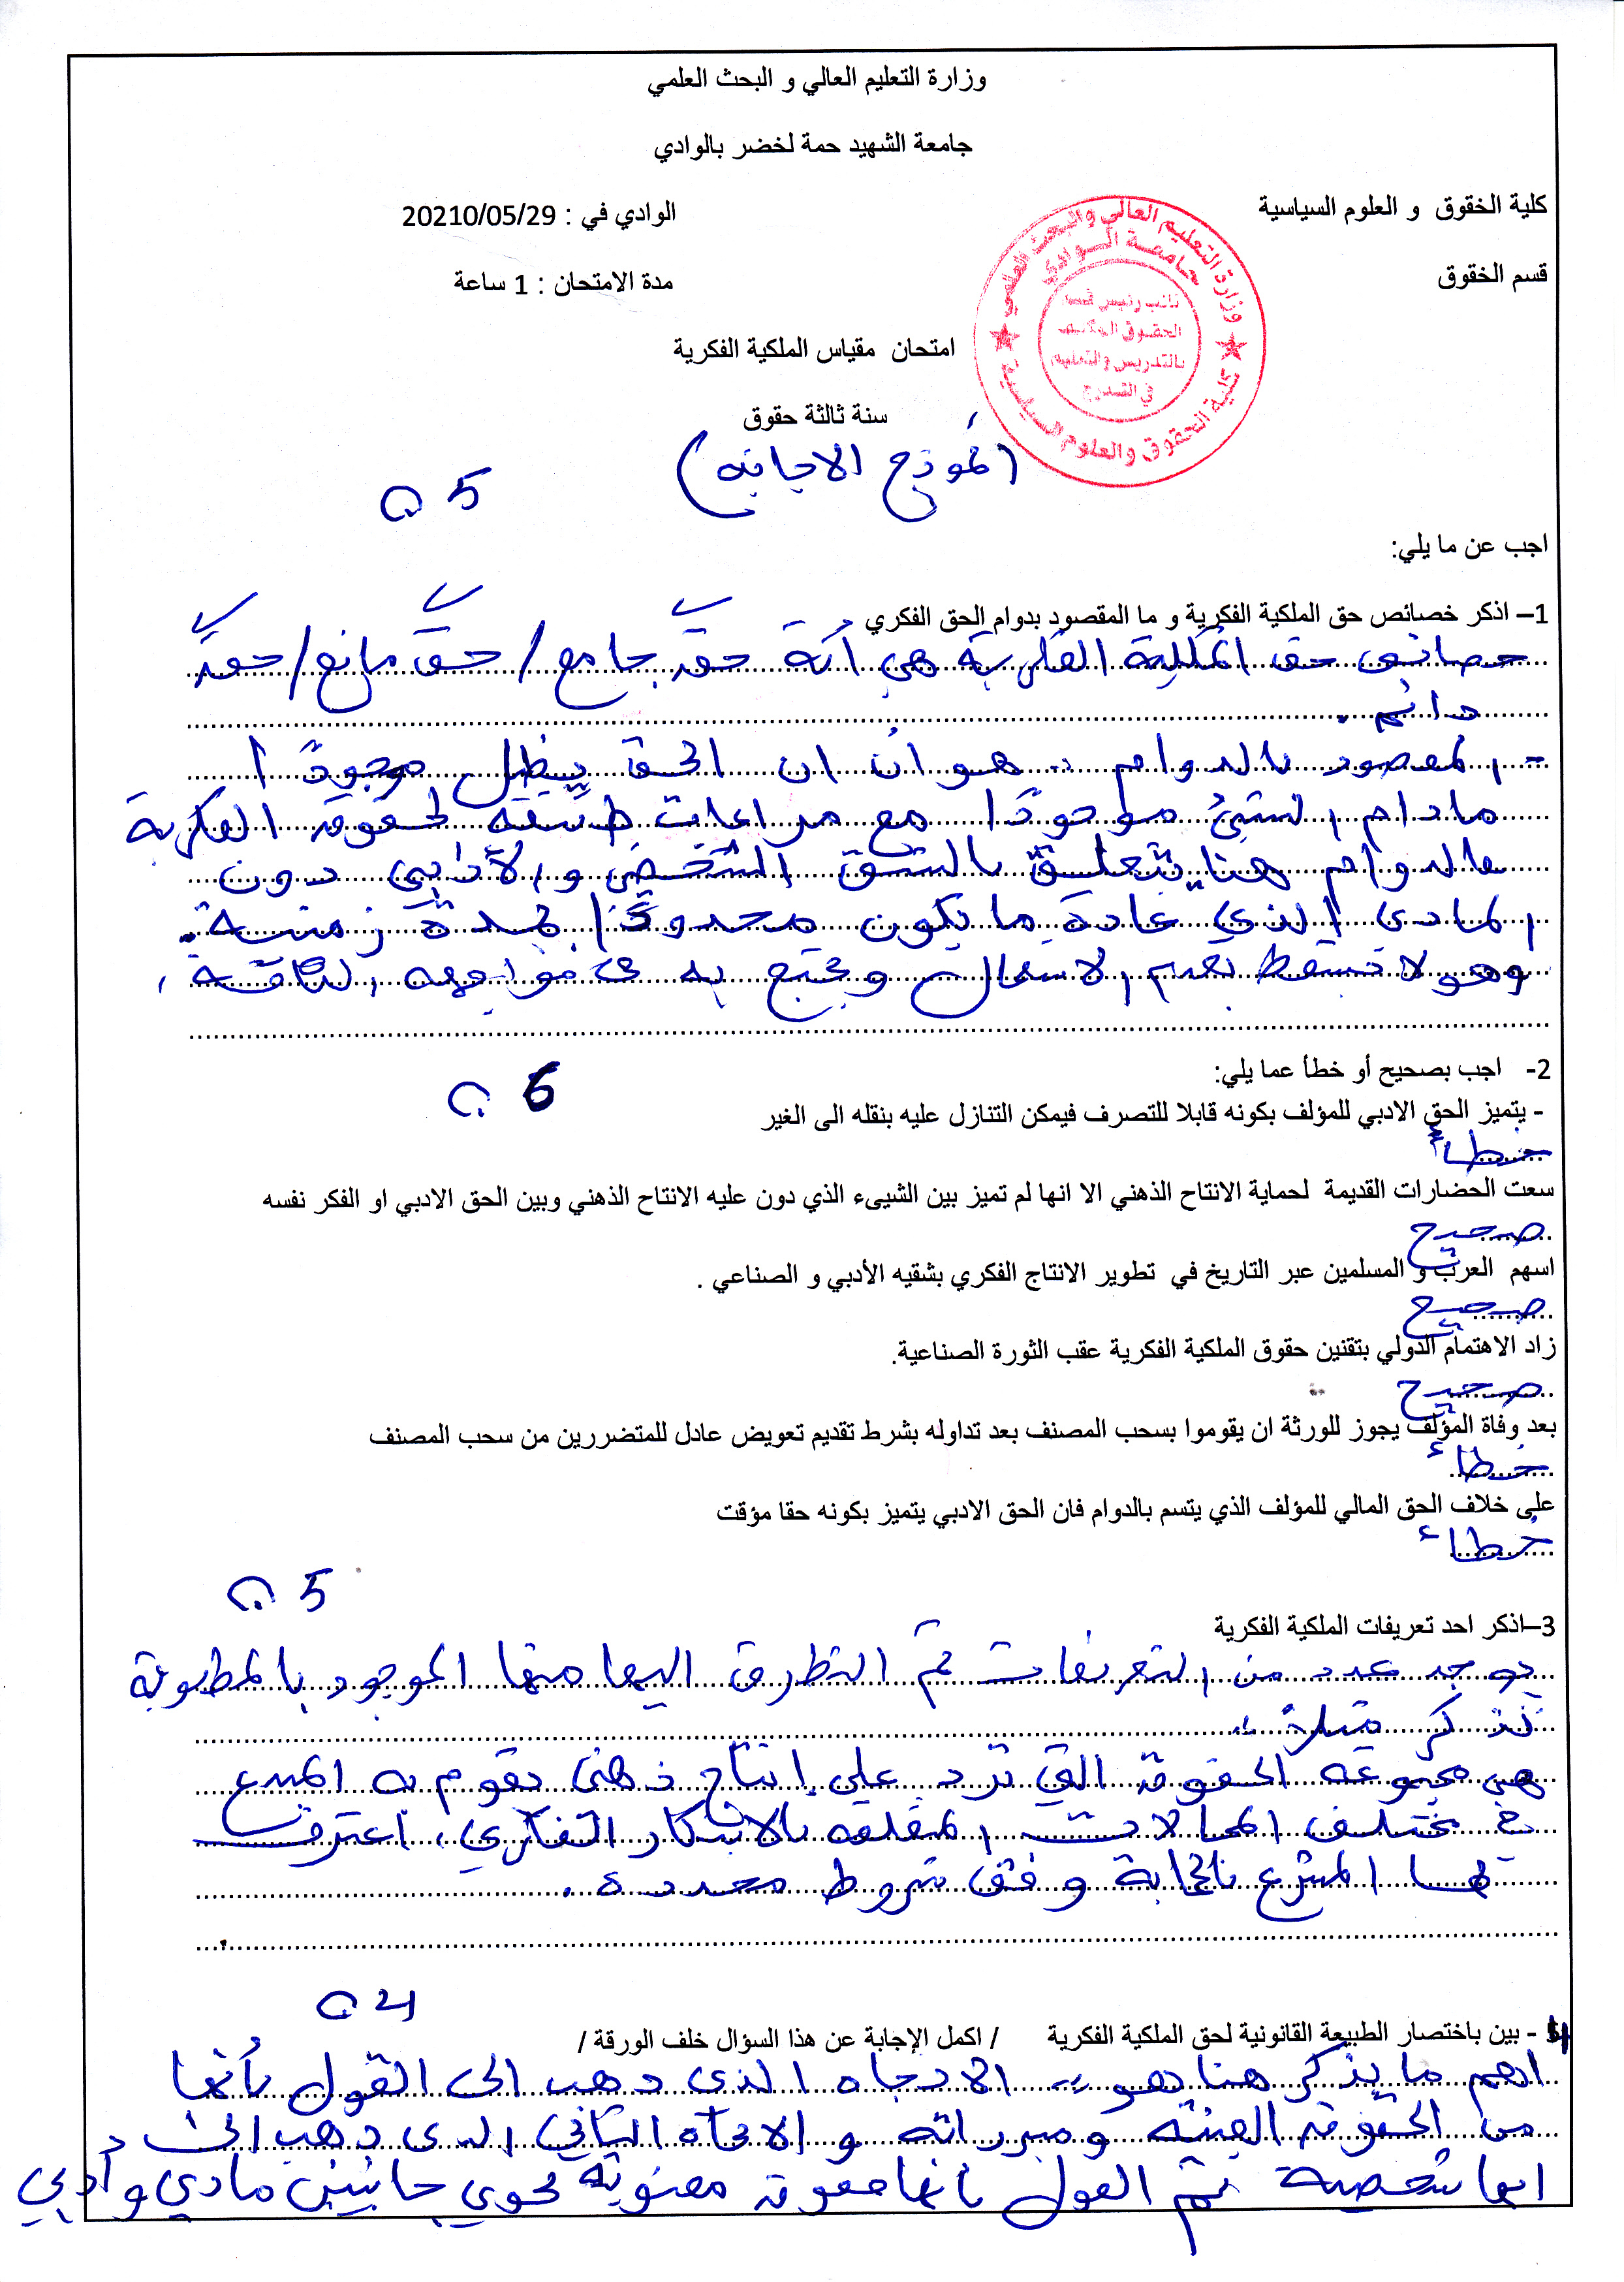 وزارة التعليم العالي و البحث العلمي
جامعة الشهيد حمة لخضر بالوادي
كلية الخقوق و العلوم السياسية
الوادي في : 20210/05/29
قسم الخقوق
مدة الامتحان : 1 ساعة
وزارة التعليم العالي والبحث العلمي
جامعة الوادي
نائب رئيس قسم
الحقوق المكلف
بالتدريس والتعليم
في التدرج
كلية الحقوق والعلوم السياسية
امتحان مقياس الملكية الفكرية
سنة ثالثة حقوق
(نموذج الاجابة)
5 ن
اجب عن ما يلي:
1– اذكر خصائص حق الملكية الفكرية و ما المقصود بدوام الحق الفكري
خصائص حق الملكية الفكرية هي أنه حق جامع / حق مانع / حق
دائم .
- المقصود بالدوام : هو ان الحق يظل موجودًا
مادام الشئ موجودًا مع مراعات طبيعة الحقوق الفكرية
فالدوام هنا يتعلق بالشق الشخصي والأدبي دون
المادي الذي عادة ما يكون محدودًا بمدة زمنية.
وهو لا يسقط بعدم الاستعمال ويحتج به في مواجهة الكافة .
6 ن
2- اجب بصحيح أو خطأ عما يلي:
- يتميز الحق الادبي للمؤلف بكونه قابلا للتصرف فيمكن التنازل عليه بنقله الى الغير
خطأ
سعت الحضارات القديمة لحماية الانتاح الذهني الا انها لم تميز بين الشيىء الذي دون عليه الانتاح الذهني وبين الحق الادبي او الفكر نفسه
صحيح
اسهم العرب و المسلمين عبر التاريخ في تطوير الانتاج الفكري بشقيه الأدبي و الصناعي .
صحيح
زاد الاهتمام الدولي بتقنين حقوق الملكية الفكرية عقب الثورة الصناعية.
صحيح
بعد وفاة المؤلف يجوز للورثة ان يقوموا بسحب المصنف بعد تداوله بشرط تقديم تعويض عادل للمتضررين من سحب المصنف
خطاء
على خلاف الحق المالي للمؤلف الذي يتسم بالدوام فان الحق الادبي يتميز بكونه حقا مؤقت
خطاء
5 ن
3–اذكر احد تعريفات الملكية الفكرية
يوجد عدد من التعريفات تم التطرق اليها منها الموجود بالمطبوعة
نذكر مثلاً :
هي مجموعة الحقوق التي ترد على إنتاج ذهني يقوم به المبدع
في مختلف المجالات المتعلقة بالابتكار الفكري، اعترف
لها المشرع بالحماية وفق شروط محددة .
4 ن
4 - بين باختصار الطبيعة القانونية لحق الملكية الفكرية / اكمل الإجابة عن هذا السؤال خلف الورقة /
اهم ما يذكر هنا هو : الاتجاه الذي ذهب الى القول بأنها
من الحقوق العينية ومبرراته و الاتجاه الثاني الذي ذهب الى
انها شخصية ثم القول بانها حقوق معنوية تحوي جانبين مادي وأدبي